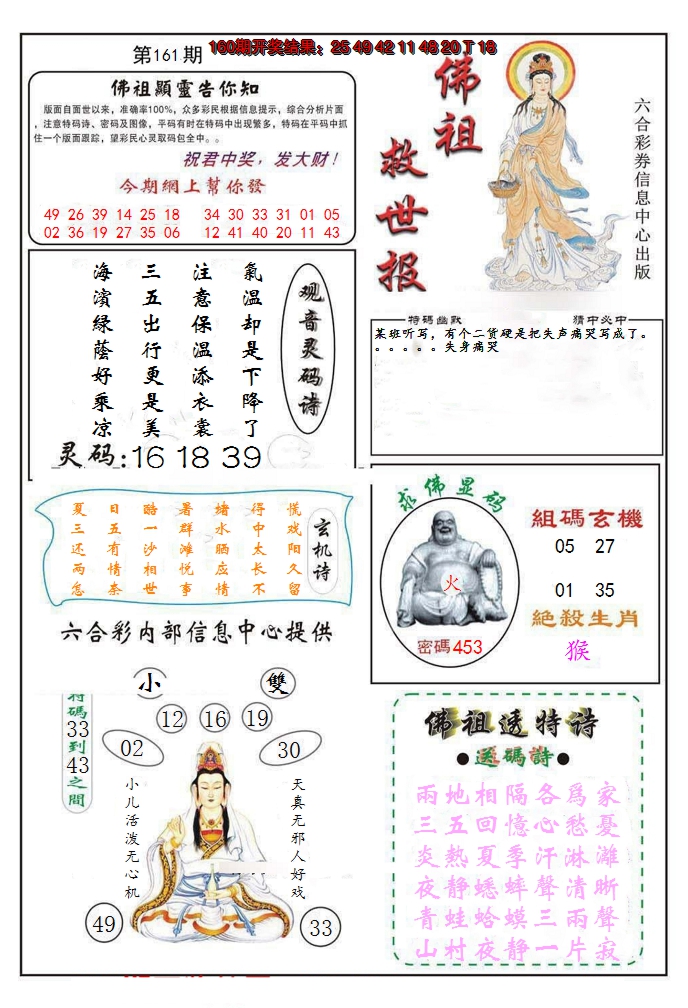 第161期
160期开奖结果：25 49 42 11 48 20 T 18
佛祖顯靈告你知
版面自面世以来，准确率100%，众多彩民根据信息提示，综合分析片面
，注意特码诗、密码及图像，平码有时在特码中出现繁多，特码在平码中抓
住一个版面跟踪，望彩民心灵取码包全中。。
祝君中奖，发大财！
今期網上幫你發
49 26 39 14 25 18 34 30 33 31 01 05
02 36 19 27 35 06 12 41 40 20 11 43
佛祖
救世报
六合彩券信息中心出版
观音灵码诗
氣温却是下降了
注意保温添衣裳
三五出行更是美
海濱緑蔭好乘凉
灵码:16 18 39
特碼幽默
猜中必中
某班听写，有个二货硬是把失声痛哭写成了。
。。。。。失身痛哭
玄机诗
夏日酷暑绪得慌
三五一群水中戏
还有沙滩晒太阳
两情相悦应长久
怎奈世事情不留
六合彩内部信息中心提供
求佛显码
火
密碼453
組碼玄機
05 27
01 35
絶殺生肖
猴
小
雙
特碼33到43之間
12
16
19
02
30
小儿活泼无心机
天真无邪人好戏
49
33
佛祖透特诗
●送碼詩●
兩地相隔各爲家
三五回憶心愁憂
炎熱夏季汗淋濰
夜靜蟋蟀聲清晰
青蛙蛤蟆三兩聲
山村夜靜一片寂